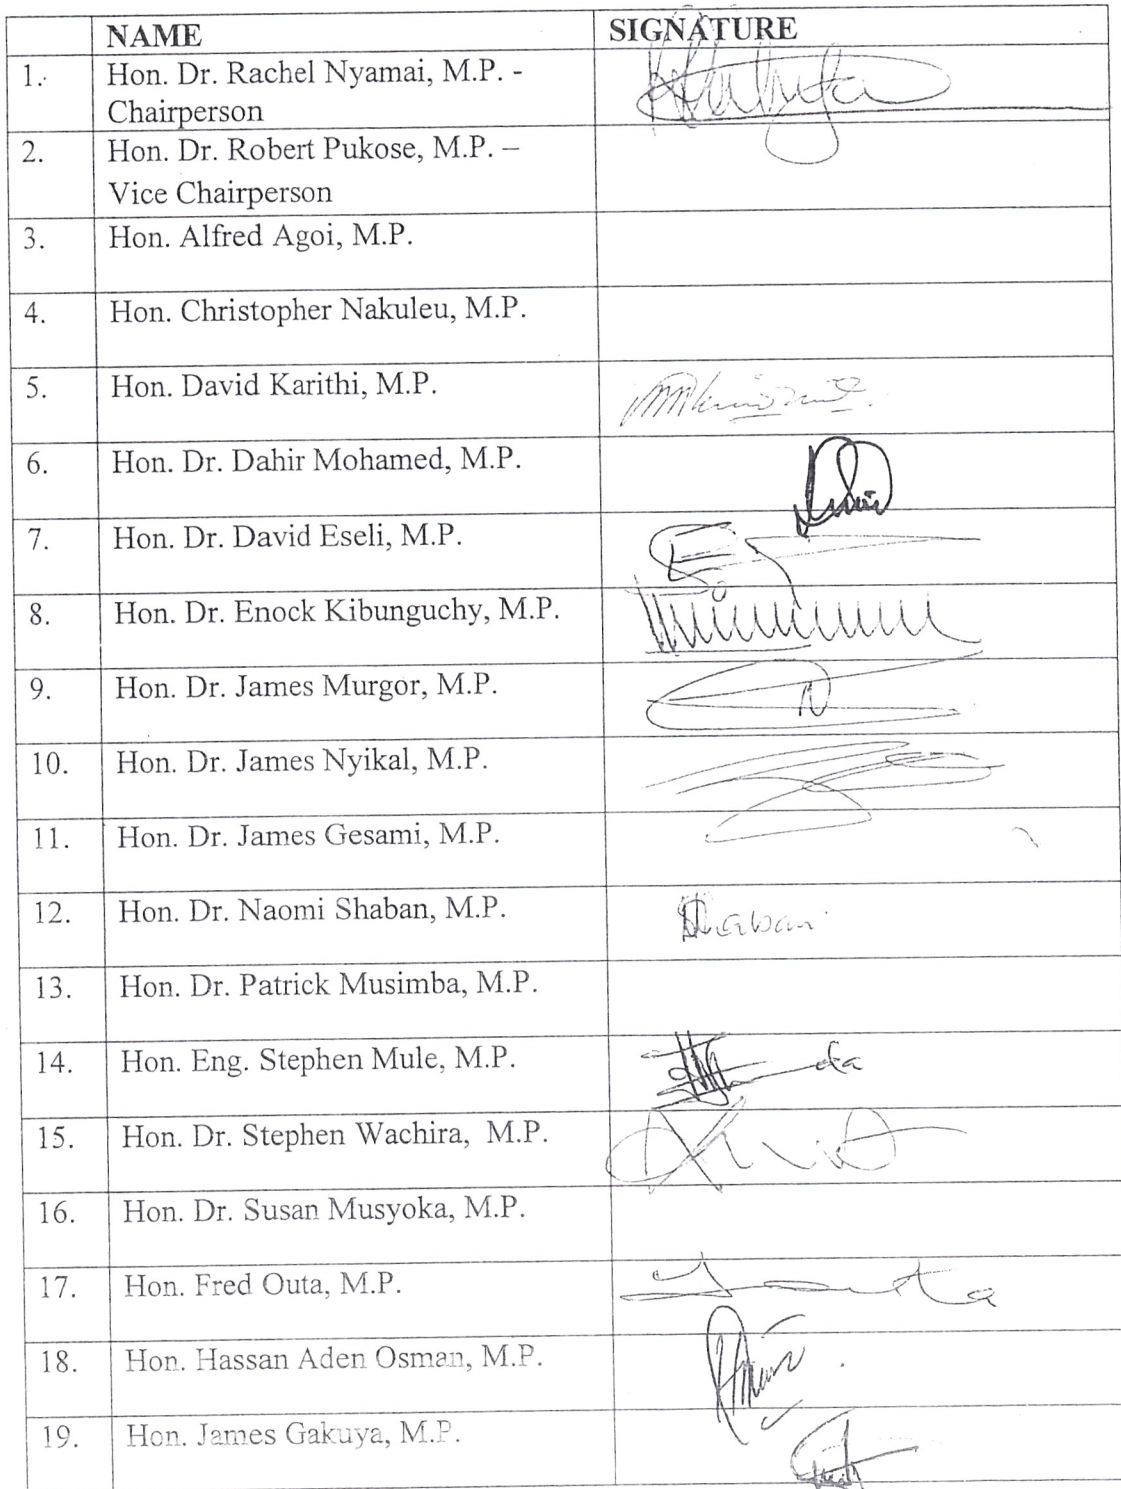 NAME SIGNATURE
1. Hon. Dr. Rachel Nyamai, M.P. -
Chairperson
2. Hon. Dr. Robert Pukose, M.P. –
Vice Chairperson
3. Hon. Alfred Agoi, M.P.
4. Hon. Christopher Nakuleu, M.P.
5. Hon. David Karithi, M.P.
6. Hon. Dr. Dahir Mohamed, M.P.
7. Hon. Dr. David Eseli, M.P.
8. Hon. Dr. Enock Kibunguchy, M.P.
9. Hon. Dr. James Murgor, M.P.
10. Hon. Dr. James Nyikal, M.P.
11. Hon. Dr. James Gesami, M.P.
12. Hon. Dr. Naomi Shaban, M.P. Shaban
13. Hon. Dr. Patrick Musimba, M.P.
14. Hon. Eng. Stephen Mule, M.P.
15. Hon. Dr. Stephen Wachira, M.P.
16. Hon. Dr. Susan Musyoka, M.P.
17. Hon. Fred Outa, M.P.
18. Hon. Hassan Aden Osman, M.P.
19. Hon. James Gakuya, M.P.